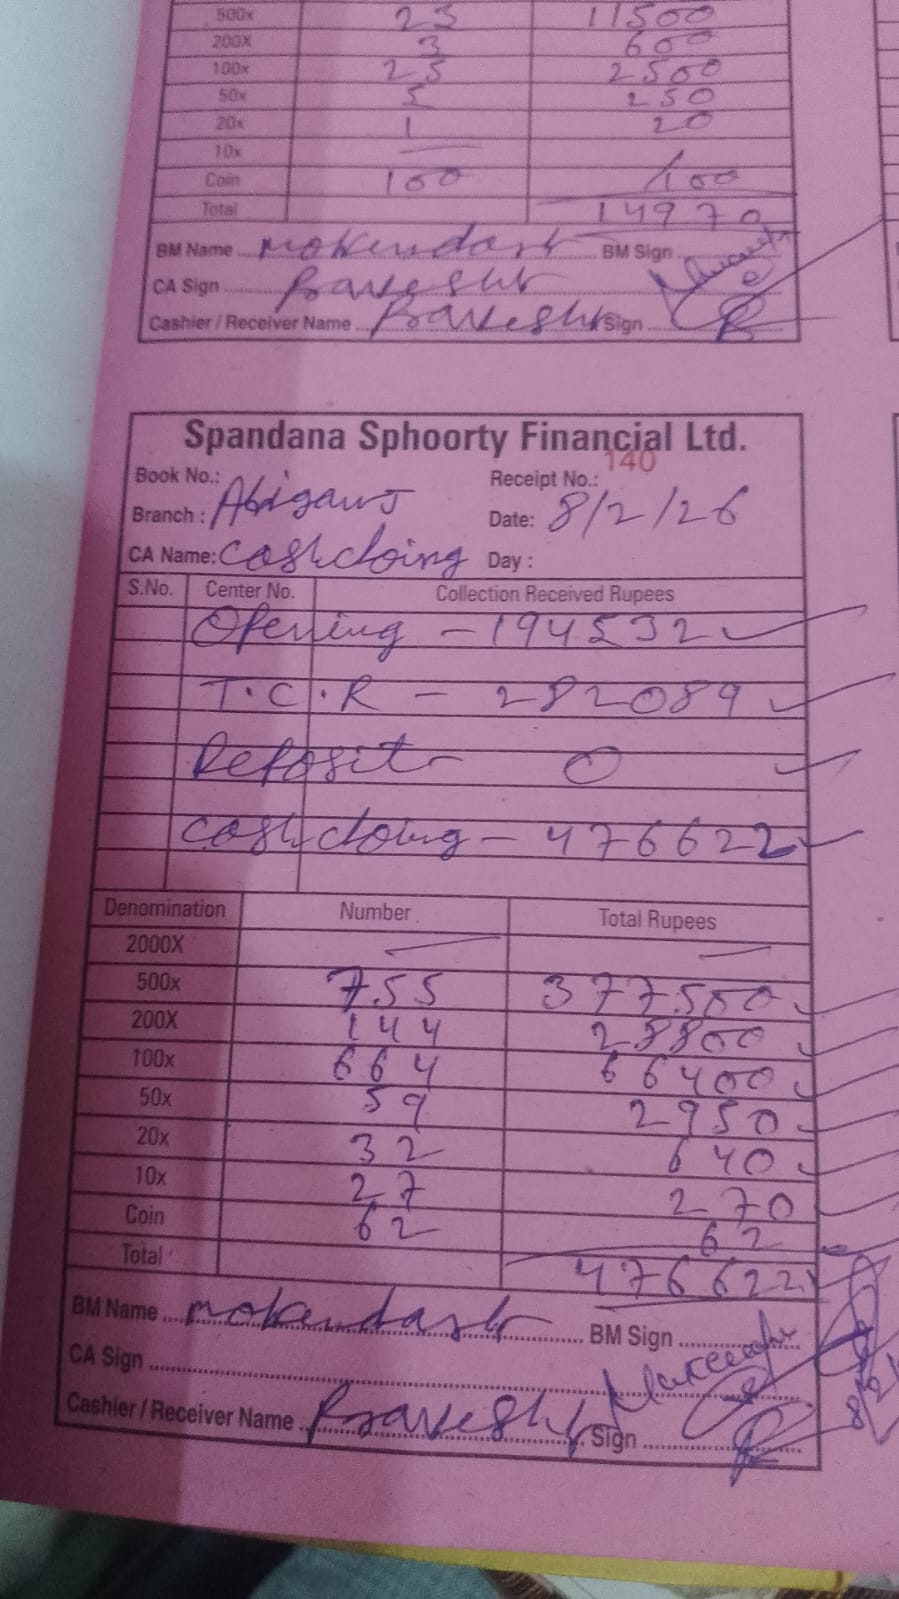 500x 23 11500
200X 3 600
100x 25 2500
50x 5 250
20x 1 20
10x —
Coin 100 100
Total 14970
BM Name BM Sign
CA Sign
Cashier / Receiver Name Sign
Spandana Sphoorty Financial Ltd.
Book No.: Receipt No.: 140
Branch : Date: 8/2/26
CA Name: Day :
S.No. Center No. Collection Received Rupees
Opening - 194532
T.C.R - 282089
Deposit - 0
Cash closing - 476622
Denomination Number Total Rupees
2000X — —
500x 755 377500
200X 144 28800
100x 664 66400
50x 59 2950
20x 32 640
10x 27 270
Coin 62 62
Total 476622
BM Name BM Sign
CA Sign
Cashier / Receiver Name Sign